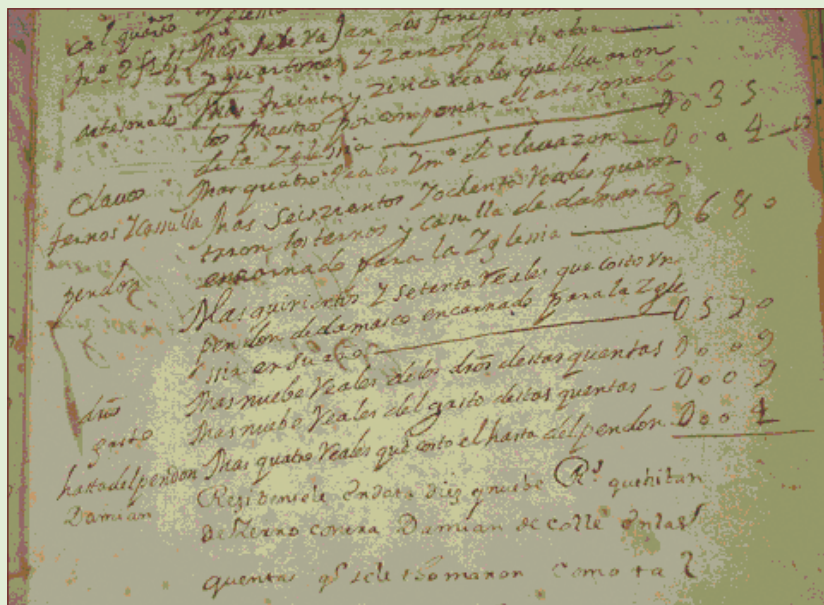 cal quartos
fr.º 2 fs 6 Mas se le vajan dos fanegas
y quartones y zarzos para la obra
artesonado Mas treinta y zinco reales que llevaron
los Maestros por componer el artesonado
de la Yglessia 0035
Clavos Mas quatro reales de clavazon 0004
ternos y Cassulla Mas seiszientos y ochenta reales que cos
taron los ternos y casulla de damasco
encarnado para la Yglessia 0680
pendon Mas quinientos y setenta reales que costo vn
pendon de damasco encarnado para la Ygle
ssia en su año 0570
dros Mas nuebe reales de los dros destas quentas 0009
gasto Mas nuebe reales del gasto destas quentas 0009
hasta del pendon Mas quatro reales que costo el hasta del pendon 0004
Damian Rezibensele en data diez y nuebe Rs que hitan
de Yerro contra Damian de colle en las
quentas q se le thomaron como tal